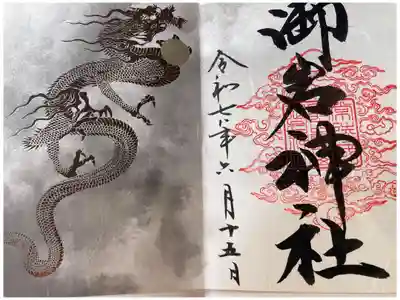 御岩神社
令和七年六月十五日